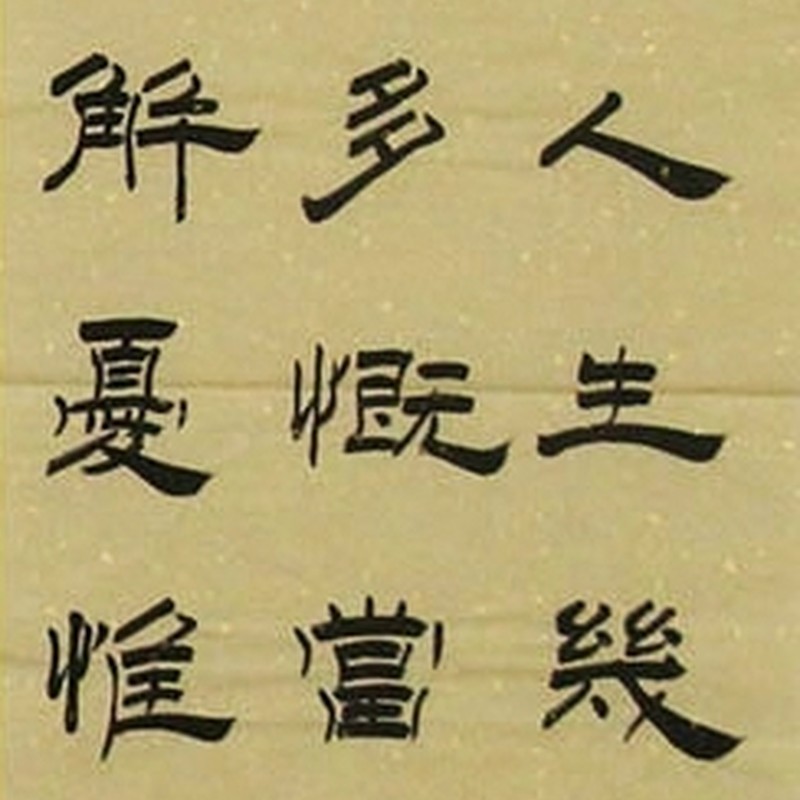 人生幾
多慨當
解憂惟